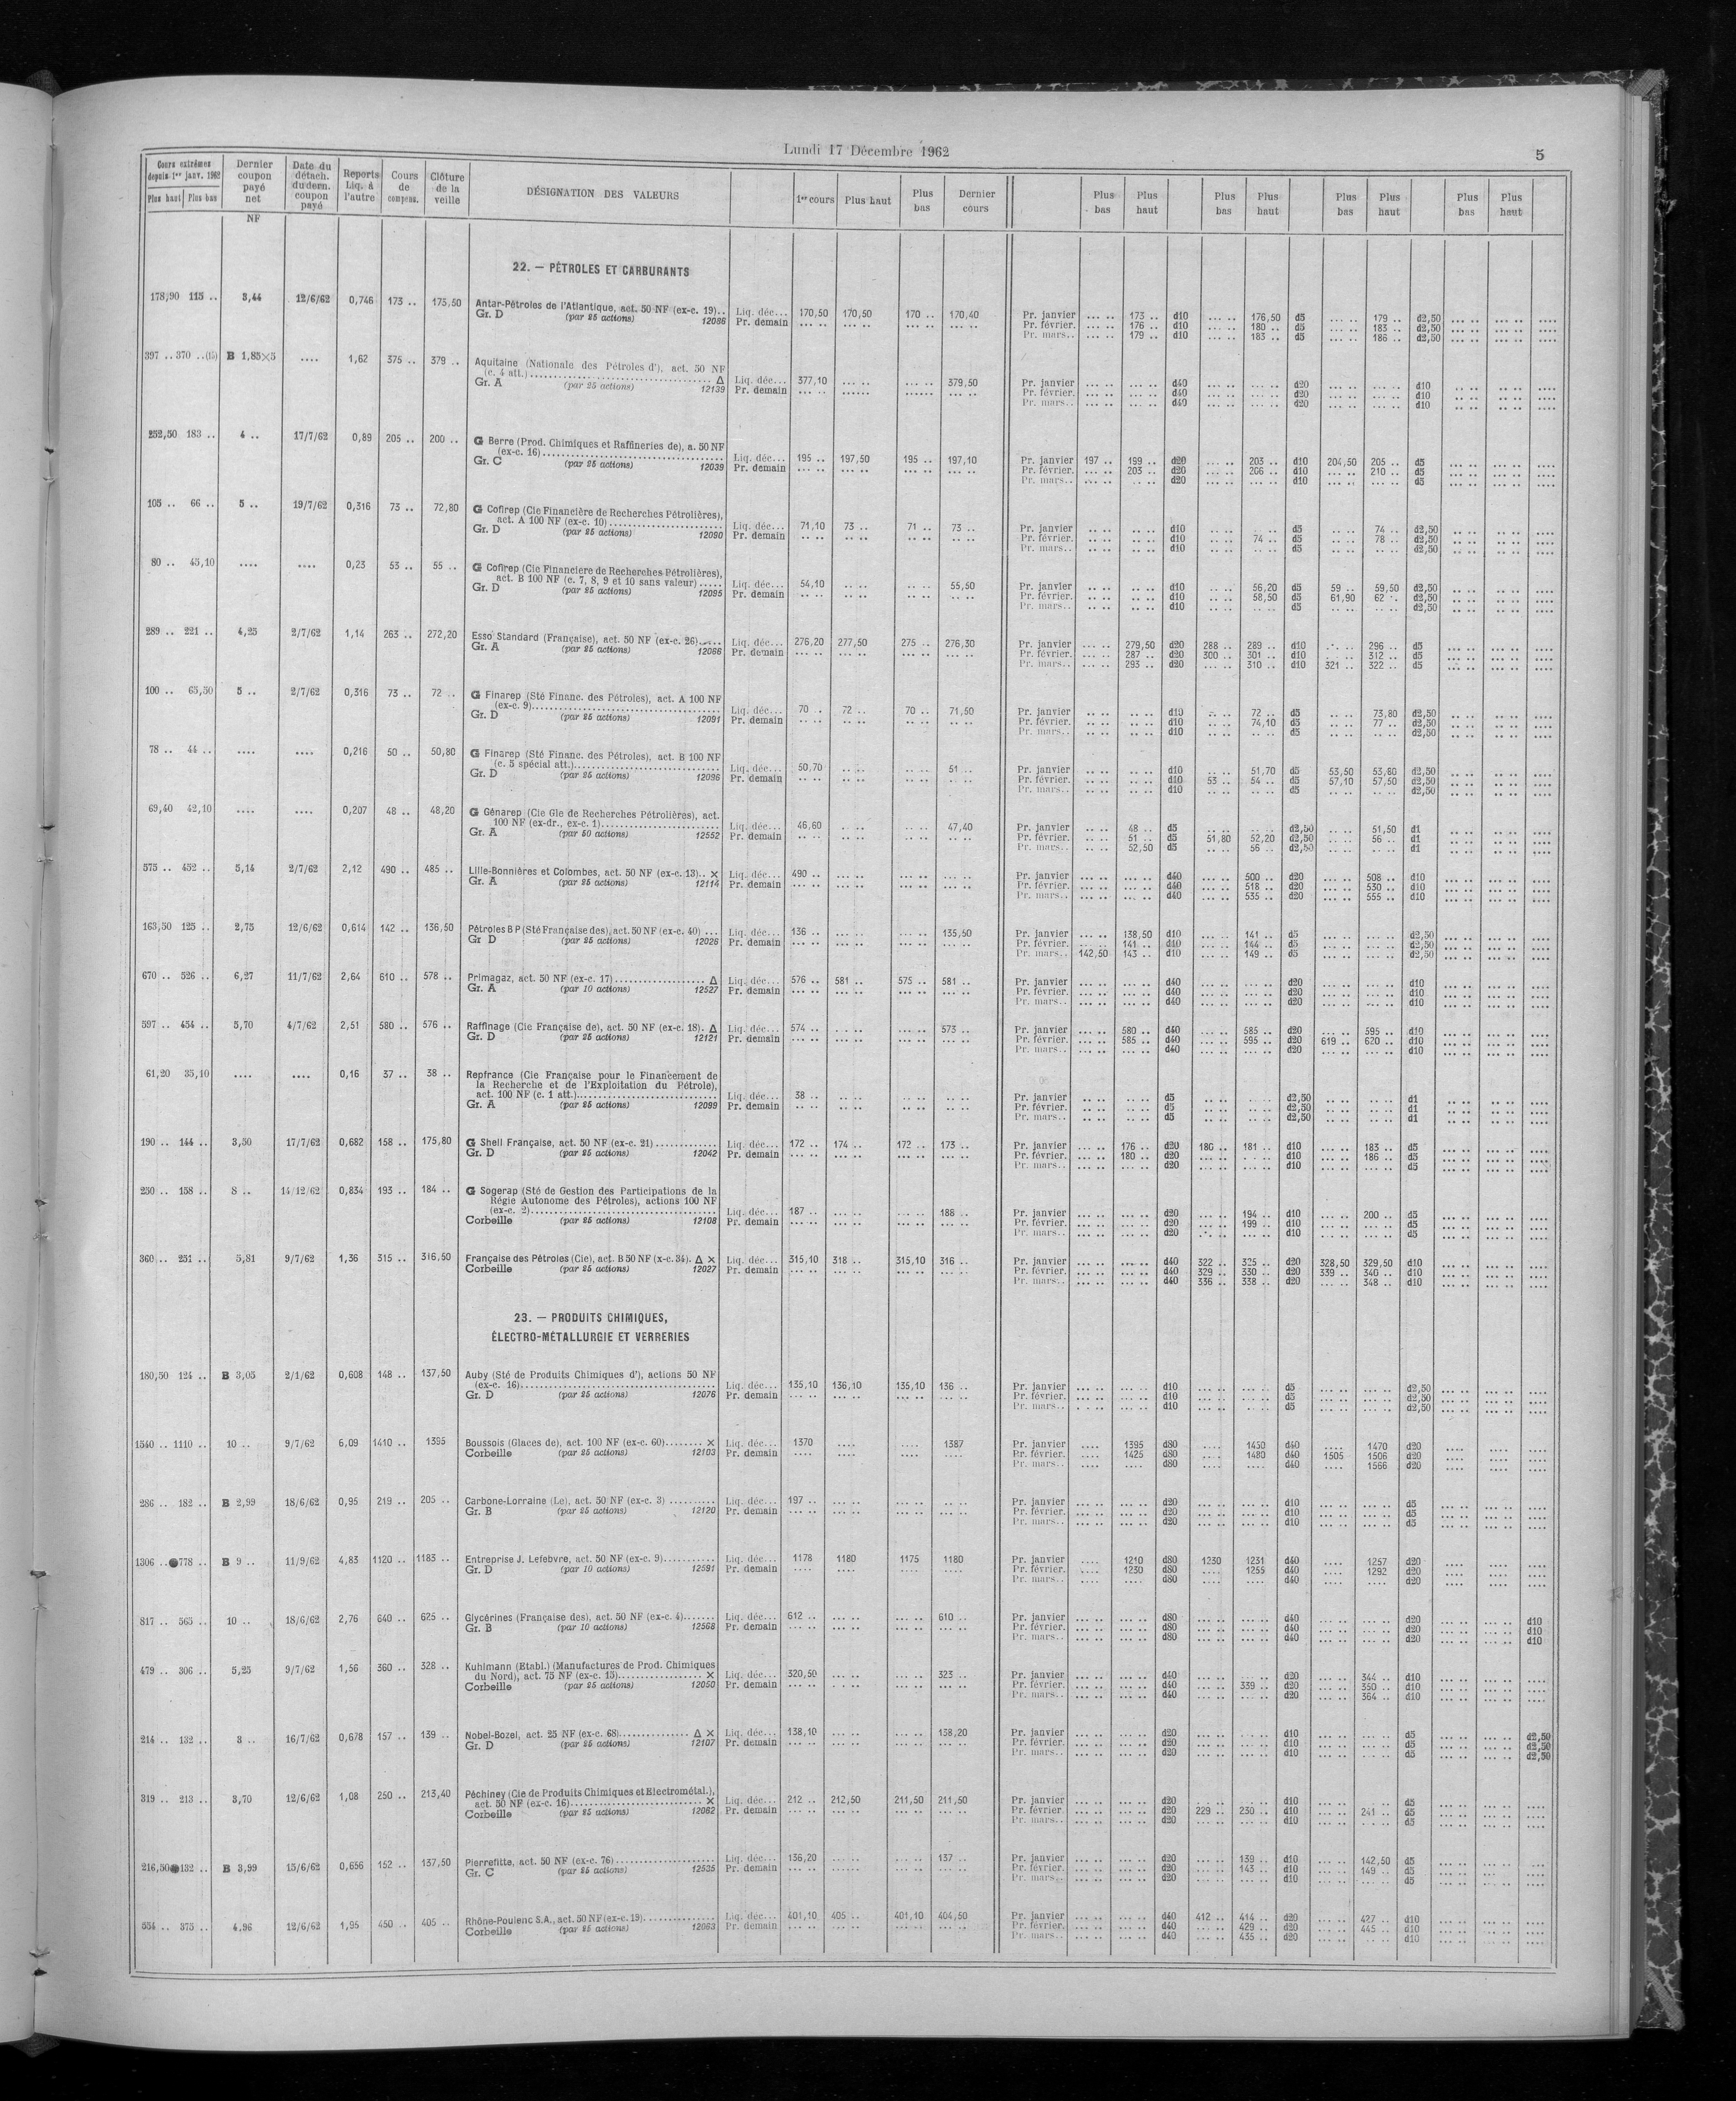 Lundi 17 Décembre 1962
5
Cours extrêmes depuis 1er janv. 1962 Plus haut Plus bas | Dernier coupon payé net NF | Date du détach. du dern. coupon payé | Reports Liq. à l'autre | Cours de compens. | Clôture de la veille | DÉSIGNATION DES VALEURS | 1er cours | Plus haut | Plus bas | Dernier cours | Plus bas | Plus haut | Plus bas | Plus haut | Plus bas | Plus haut | Plus bas | Plus haut
22. — PÉTROLES ET CARBURANTS
178,90 115 .. 3,44 12/6/62 0,746 173 .. 175,50 Antar-Pétroles de l'Atlantique, act. 50 NF (ex-c. 19)..
Gr. D (par 25 actions) 12086
Liq. déc... 170,50 170,50 170 .. 170,40 Pr. janvier ... .. 173 .. d10 ... .. 176,50 d5 ... .. 179 .. d2,50
Pr. demain ... .. Pr. février. ... .. 176 .. d10 ... .. 180 .. d5 ... .. 183 .. d2,50
Pr. mars.. ... .. 179 .. d10 ... .. 183 .. d5 ... .. 186 .. d2,50
397 .. 370 ..(6) B 1,85×5 .... 1,62 375 .. 379 .. Aquitaine (Nationale des Pétroles d'), act. 50 NF
(c. 4 att.) Δ
Gr. A (par 25 actions) 12139
Liq. déc... 377,10 ... .. ... .. 379,50 Pr. janvier d40 d20 d10
Pr. demain Pr. février. d40 d20 d10
Pr. mars.. d40 d20 d10
252,50 183 .. 4 .. 17/7/62 0,89 205 .. 200 .. G Berre (Prod. Chimiques et Raffineries de), a. 50 NF
(ex-c. 16)
Gr. C (par 25 actions) 12039
Liq. déc... 195 .. 197,50 195 .. 197,10 Pr. janvier 197 .. 199 .. d20 ... .. 203 .. d10 204,50 205 .. d5
Pr. demain Pr. février. ... .. 203 .. d20 ... .. 206 .. d10 ... .. 210 .. d5
Pr. mars.. d20 d10 d5
105 .. 66 .. 5 .. 19/7/62 0,316 73 .. 72,80 G Cofirep (Cie Financière de Recherches Pétrolières),
act. A 100 NF (ex-c. 10)
Gr. D (par 25 actions) 12090
Liq. déc... 71,10 73 .. 71 .. 73 .. Pr. janvier d10 d5 74 .. d2,50
Pr. demain Pr. février. d10 74 .. d5 78 .. d2,50
Pr. mars.. d10 d5 d2,50
80 .. 45,10 .... .... 0,23 53 .. 55 .. G Cofirep (Cie Financière de Recherches Pétrolières),
act. B 100 NF (c. 7, 8, 9 et 10 sans valeur) .....
Gr. D (par 25 actions) 12095
Liq. déc... 54,10 .. .. .. .. 55,50 Pr. janvier d10 56,20 d5 59 .. 59,50 d2,50
Pr. demain Pr. février. d10 58,50 d5 61,90 62 .. d2,50
Pr. mars.. d10 d5 d2,50
289 .. 221 .. 4,25 2/7/62 1,14 263 .. 272,20 Esso Standard (Française), act. 50 NF (ex-c. 26).....
Gr. A (par 25 actions) 12066
Liq. déc... 276,20 277,50 275 .. 276,30 Pr. janvier 279,50 d20 288 .. 289 .. d10 296 .. d5
Pr. demain Pr. février. 287 .. d20 300 .. 301 .. d10 312 .. d5
Pr. mars.. 293 .. d20 310 .. d10 321 .. 322 .. d5
100 .. 65,50 5 .. 2/7/62 0,316 73 .. 72 .. G Finarep (Sté Financ. des Pétroles), act. A 100 NF
(ex-c. 9)
Gr. D (par 25 actions) 12091
Liq. déc... 70 .. 72 .. 70 .. 71,50 Pr. janvier d10 72 .. d5 73,80 d2,50
Pr. demain Pr. février. d10 74,10 d5 77 .. d2,50
Pr. mars.. d10 d5 d2,50
78 .. 44 .. .... .... 0,216 50 .. 50,80 G Finarep (Sté Financ. des Pétroles), act. B 100 NF
(c. 5 spécial att.)
Gr. D (par 25 actions) 12096
Liq. déc... 50,70 .. .. .. .. 51 .. Pr. janvier d10 51,70 d5 53,50 53,60 d2,50
Pr. demain Pr. février. d10 53 .. 54 .. d5 57,10 57,50 d2,50
Pr. mars.. d10 d5 d2,50
69,40 42,10 .... .... 0,207 48 .. 48,20 G Génarep (Cie Gle de Recherches Pétrolières), act.
100 NF (ex-dr., ex-c. 1)
Gr. A (par 50 actions) 12552
Liq. déc... 46,60 .. .. .. .. 47,40 Pr. janvier 48 .. d5 d2,50 51,50 d1
Pr. demain Pr. février. 51 .. d5 51,80 52,20 d2,50 56 .. d1
Pr. mars.. 52,50 d5 56 .. d2,50 d1
575 .. 452 .. 5,14 2/7/62 2,12 490 .. 485 .. Lille-Bonnières et Colombes, act. 50 NF (ex-c. 13).. ×
Gr. A (par 25 actions) 12114
Liq. déc... 490 .. Pr. janvier d40 500 .. d20 508 .. d10
Pr. demain Pr. février. d40 518 .. d20 530 .. d10
Pr. mars.. d40 535 .. d20 555 .. d10
163,50 125 .. 2,75 12/6/62 0,614 142 .. 136,50 Pétroles B P (Sté Française des), act. 50 NF (ex-c. 40) ...
Gr D (par 25 actions) 12026
Liq. déc... 136 .. 135,50 Pr. janvier 138,50 d10 141 .. d5 d2,50
Pr. demain Pr. février. 141 .. d10 144 .. d5 d2,50
Pr. mars.. 142,50 143 .. d10 149 .. d5 d2,50
670 .. 526 .. 6,27 11/7/62 2,64 610 .. 578 .. Primagaz, act. 50 NF (ex-c. 17) Δ
Gr. A (par 10 actions) 12527
Liq. déc... 576 .. 581 .. 575 .. 581 .. Pr. janvier d40 d20 d10
Pr. demain Pr. février. d40 d20 d10
Pr. mars.. d40 d20 d10
597 .. 454 .. 5,70 4/7/62 2,51 580 .. 576 .. Raffinage (Cie Française de), act. 50 NF (ex-c. 18). Δ
Gr. D (par 25 actions) 12121
Liq. déc... 574 .. 573 .. Pr. janvier 580 .. d40 585 .. d20 595 .. d10
Pr. demain Pr. février. 585 .. d40 595 .. d20 619 .. 620 .. d10
Pr. mars.. d40 d20 d10
61,20 35,10 .... .... 0,16 37 .. 38 .. Repfrance (Cie Française pour le Financement de
la Recherche et de l'Exploitation du Pétrole),
act. 100 NF (c. 1 att.)
Gr. A (par 25 actions) 12099
Liq. déc... 38 .. Pr. janvier d5 d2,50 d1
Pr. demain Pr. février. d5 d2,50 d1
Pr. mars.. d5 d2,50 d1
190 .. 144 .. 3,50 17/7/62 0,682 158 .. 175,80 G Shell Française, act. 50 NF (ex-c. 21)
Gr. D (par 25 actions) 12042
Liq. déc... 172 .. 174 .. 172 .. 173 .. Pr. janvier 176 .. d20 180 .. 181 .. d10 183 .. d5
Pr. demain Pr. février. 180 .. d20 d10 186 .. d5
Pr. mars.. d20 d10 d5
250 .. 158 .. 8 .. 14/12/62 0,834 193 .. 184 .. G Sogerap (Sté de Gestion des Participations de la
Régie Autonome des Pétroles), actions 100 NF
(ex-c. 2)
Corbeille (par 25 actions) 12108
Liq. déc... 187 .. 188 .. Pr. janvier d20 194 .. d10 200 .. d5
Pr. demain Pr. février. d20 199 .. d10 d5
Pr. mars.. d20 d10 d5
360 .. 251 .. 5,81 9/7/62 1,36 315 .. 316,50 Française des Pétroles (Cie), act. B 50 NF (x-c. 34). Δ ×
Corbeille (par 25 actions) 12027
Liq. déc... 315,10 318 .. 315,10 316 .. Pr. janvier d40 322 .. 325 .. d20 328,50 329,50 d10
Pr. demain Pr. février. d40 329 .. 330 .. d20 339 .. 340 .. d10
Pr. mars.. d40 336 .. 338 .. d20 348 .. d10
23. — PRODUITS CHIMIQUES,
ÉLECTRO-MÉTALLURGIE ET VERRERIES
180,50 124 .. B 3,05 2/1/62 0,608 148 .. 137,50 Auby (Sté de Produits Chimiques d'), actions 50 NF
(ex-c. 16)
Gr. D (par 25 actions) 12076
Liq. déc... 135,10 136,10 135,10 136 .. Pr. janvier d10 d5 d2,50
Pr. demain Pr. février. d10 d5 d2,50
Pr. mars.. d10 d5 d2,50
1540 .. 1110 .. 10 .. 9/7/62 6,09 1410 .. 1395 Boussois (Glaces de), act. 100 NF (ex-c. 60)........ ×
Corbeille (par 25 actions) 12103
Liq. déc... 1370 .... .... 1387 Pr. janvier 1395 d80 1450 d40 1470 d20
Pr. demain Pr. février. 1425 d80 1480 d40 1505 1506 d20
Pr. mars.. d80 d40 1566 d20
286 .. 182 .. B 2,99 18/6/62 0,95 219 .. 205 .. Carbone-Lorraine (Le), act. 50 NF (ex-c. 3)
Gr. B (par 25 actions) 12120
Liq. déc... 197 .. Pr. janvier d20 d10 d5
Pr. demain Pr. février. d20 d10 d5
Pr. mars.. d20 d10 d5
1306 .. ●778 .. B 9 .. 11/9/62 4,83 1120 .. 1183 .. Entreprise J. Lefebvre, act. 50 NF (ex-c. 9)
Gr. D (par 10 actions) 12591
Liq. déc... 1178 1180 1175 1180 Pr. janvier 1210 d80 1230 1231 d40 1257 d20
Pr. demain Pr. février. 1230 d80 1255 d40 1292 d20
Pr. mars.. d80 d40 d20
817 .. 565 .. 10 .. 18/6/62 2,76 640 .. 625 .. Glycérines (Française des), act. 50 NF (ex-c. 4)
Gr. B (par 10 actions) 12568
Liq. déc... 612 .. 610 .. Pr. janvier d80 d40 d20 d10
Pr. demain Pr. février. d80 d40 d20 d10
Pr. mars.. d80 d40 d20 d10
479 .. 306 .. 5,25 9/7/62 1,56 360 .. 328 .. Kuhlmann (Etabl.) (Manufactures de Prod. Chimiques
du Nord), act. 75 NF (ex-c. 15) ×
Corbeille (par 25 actions) 12050
Liq. déc... 320,50 323 .. Pr. janvier d40 d20 344 .. d10
Pr. demain Pr. février. d40 339 .. d20 350 .. d10
Pr. mars.. d40 d20 364 .. d10
214 .. 132 .. 3 .. 16/7/62 0,678 157 .. 139 .. Nobel-Bozel, act. 25 NF (ex-c. 68) Δ ×
Gr. D (par 25 actions) 12107
Liq. déc... 138,10 138,20 Pr. janvier d20 d10 d5 d2,50
Pr. demain Pr. février. d20 d10 d5 d2,50
Pr. mars.. d20 d10 d5 d2,50
319 .. 213 .. 3,70 12/6/62 1,08 250 .. 213,40 Péchiney (Cie de Produits Chimiques et Electrométal.),
act. 50 NF (ex-c. 16) ×
Corbeille (par 25 actions) 12062
Liq. déc... 212 .. 212,50 211,50 211,50 Pr. janvier d20 d10 d5
Pr. demain Pr. février. d20 229 .. 230 .. d10 241 .. d5
Pr. mars.. d20 d10 d5
216,50 ●132 .. B 3,99 15/6/62 0,656 152 .. 137,50 Pierrefitte, act. 50 NF (ex-c. 76)
Gr. C (par 25 actions) 12535
Liq. déc... 136,20 137 .. Pr. janvier d20 139 .. d10 142,50 d5
Pr. demain Pr. février. d20 143 .. d10 149 .. d5
Pr. mars.. d20 d10 d5
554 .. 375 .. 4,96 12/6/62 1,95 450 .. 405 .. Rhône-Poulenc S.A., act. 50 NF (ex-c. 19)
Corbeille (par 25 actions) 12063
Liq. déc... 401,10 405 .. 401,10 404,50 Pr. janvier d40 412 .. 414 .. d20 427 .. d10
Pr. demain Pr. février. d40 429 .. d20 445 .. d10
Pr. mars.. d40 435 .. d20 d10